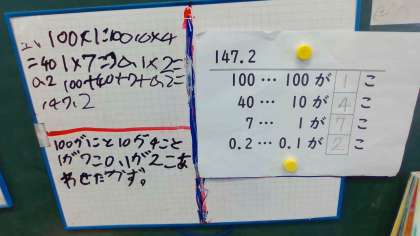 100×1=100 10×4
=40 1×7=7 0.1×2=
0.2 100+40+7+0.2=
147.2
100が1こと10が4こと
1が7こ0.1が2こあ
わせたかず。
147.2
100… 100が 1 こ
40… 10が 4 こ
7… 1が 7 こ
0.2… 0.1が 2 こ